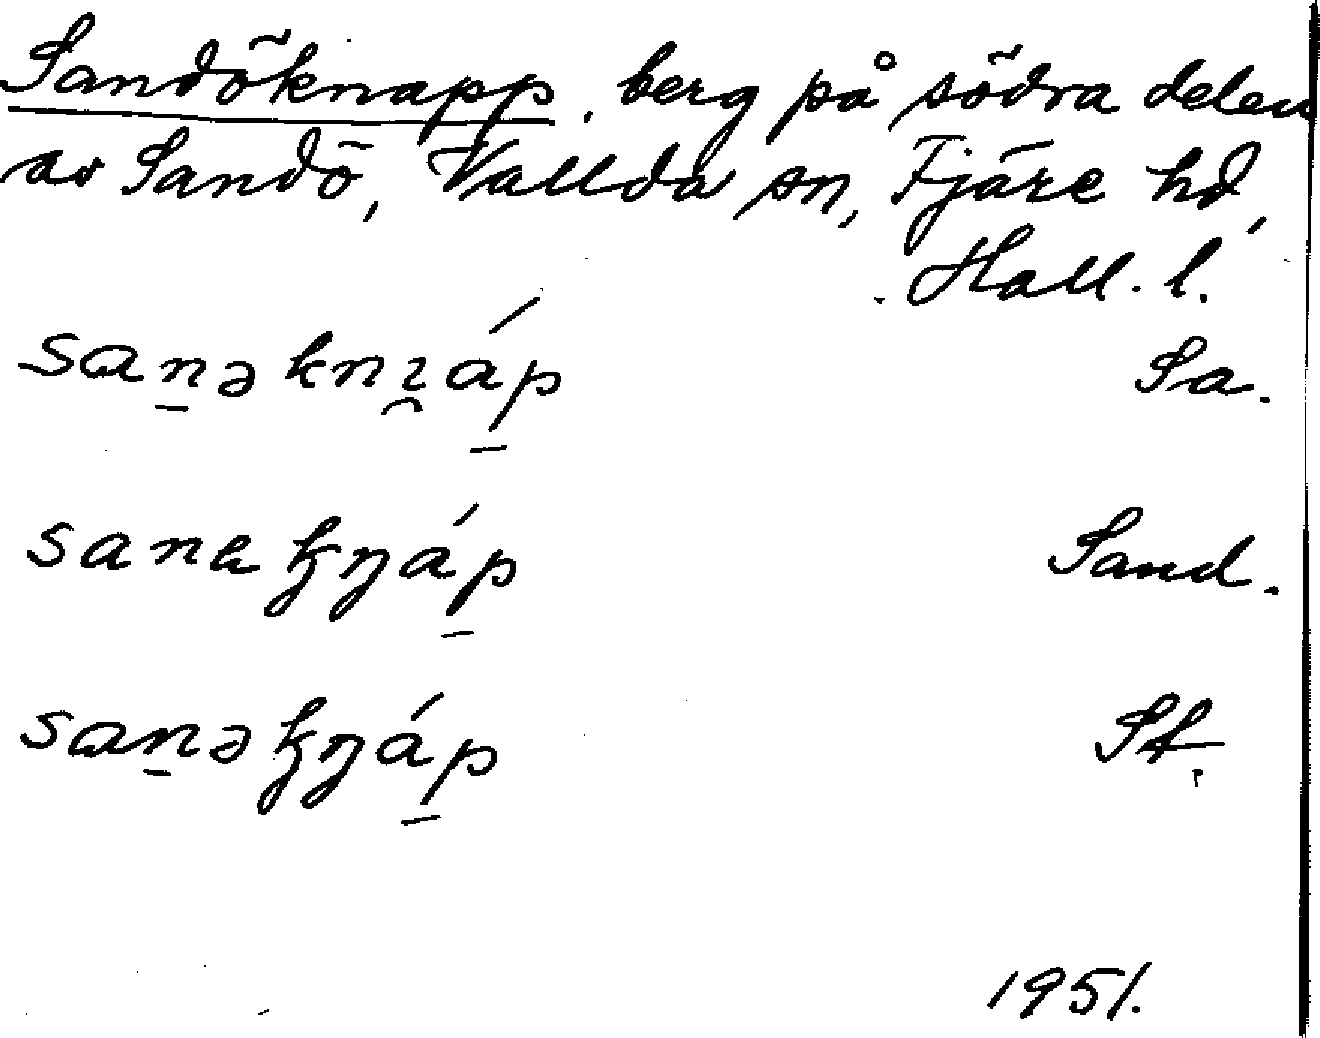 Sandöknapp, berg på södra delen
av Sandö, Vallda sn, Fjäre hd,
Hall. l.
san̠əknɪ̯áp̠ Sa.
sanaꝁŋáp̠ Sand.
san̠əꝁŋáp̠ St.
1951.